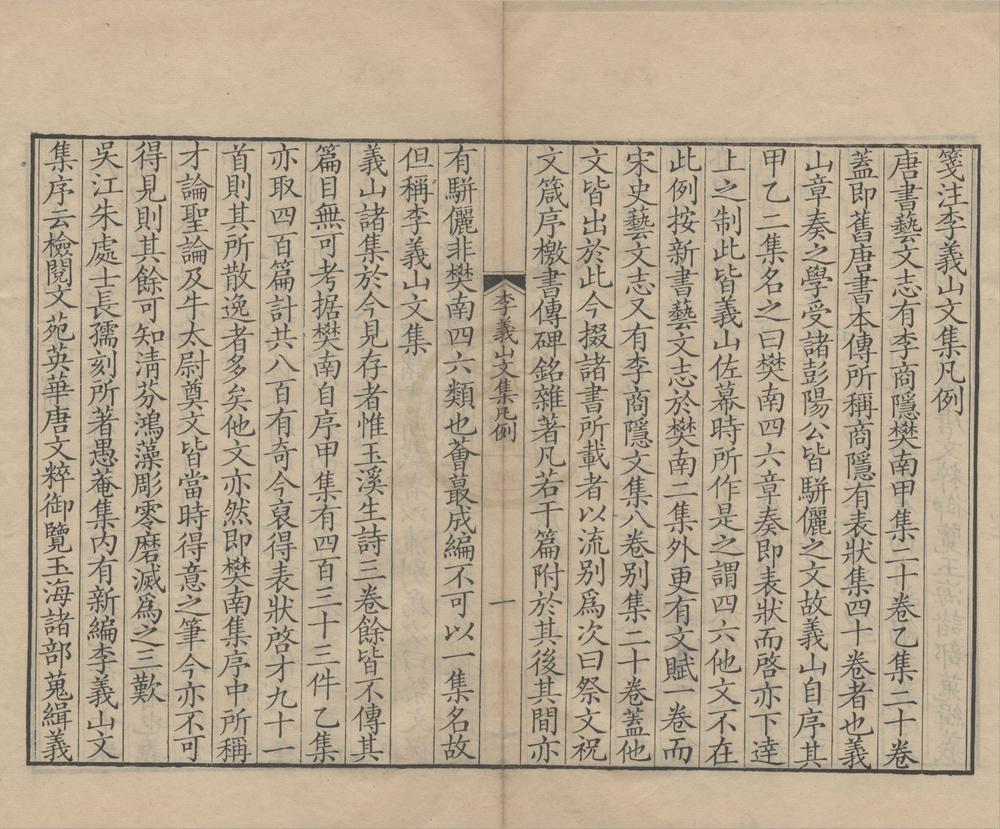 箋注李義山文集凡例
唐書藝文志有李商隱樊南甲集二十卷乙集二十卷
蓋即舊唐書本傳所稱商隱有表狀集四十卷者也義
山章奏之學受諸彭陽公皆駢儷之文故義山自序其
甲乙二集名之曰樊南四六章奏即表狀而啓亦下達
上之制此皆義山佐幕時所作是之謂四六他文不在
此例按新書藝文志於樊南二集外更有文賦一卷而
宋史藝文志又有李商隱文集八卷別集二十卷蓋他
文皆出於此今掇諸書所載者以流別爲次曰祭文祝
文箴序檄書傳碑銘雜著凡若干篇附於其後其間亦
李義山文集凡例
一
有駢儷非樊南四六類也薈蕞成編不可以一集名故
但稱李義山文集
義山諸集於今見存者惟玉溪生詩三卷餘皆不傳其
篇目無可考据樊南自序甲集有四百三十三件乙集
亦取四百篇計共八百有奇今裒得表狀啓才九十一
首則其所散逸者多矣他文亦然即樊南集序中所稱
才論聖論及牛太尉奠文皆當時得意之筆今亦不可
得見則其餘可知淸芬鴻藻彫零磨滅爲之三歎
吳江朱處士長孺刻所著愚菴集內有新編李義山文
集序云檢閱文苑英華唐文粹御覽玉海諸部蒐緝義